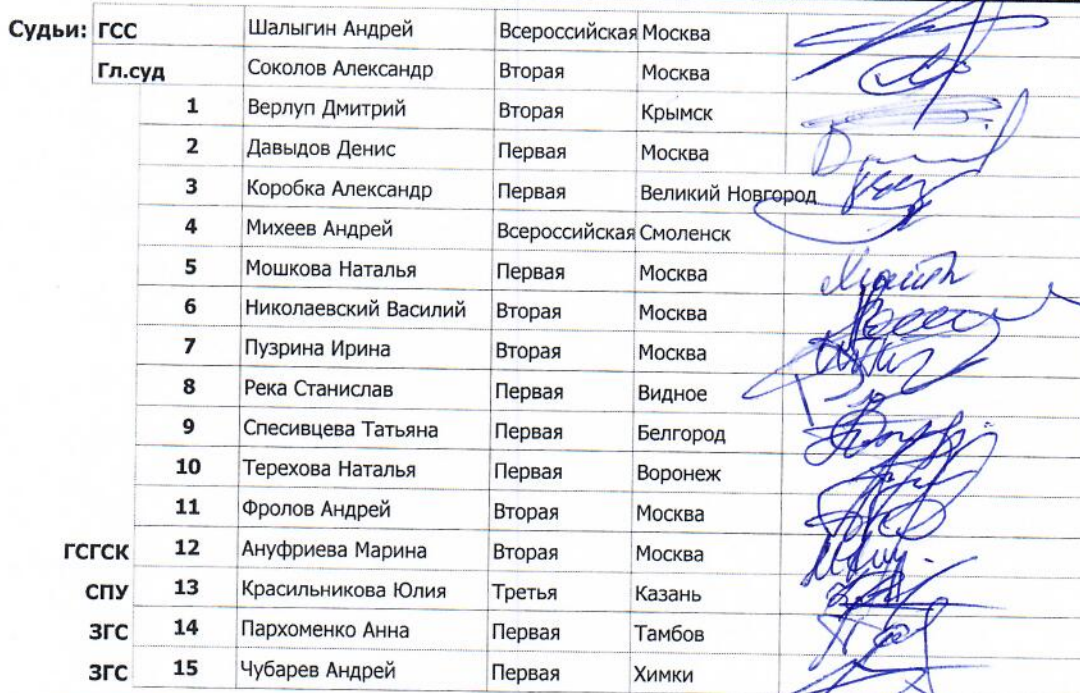 Судьи: ГСС Шалыгин Андрей Всероссийская Москва
Гл.суд Соколов Александр Вторая Москва
1 Верлуп Дмитрий Вторая Крымск
2 Давыдов Денис Первая Москва
3 Коробка Александр Первая Великий Новгород
4 Михеев Андрей Всероссийская Смоленск
5 Мошкова Наталья Первая Москва
6 Николаевский Василий Вторая Москва
7 Пузрина Ирина Вторая Москва
8 Река Станислав Первая Видное
9 Спесивцева Татьяна Первая Белгород
10 Терехова Наталья Первая Воронеж
11 Фролов Андрей Вторая Москва
ГСГСК 12 Ануфриева Марина Вторая Москва
СПУ 13 Красильникова Юлия Третья Казань
ЗГС 14 Пархоменко Анна Первая Тамбов
ЗГС 15 Чубарев Андрей Первая Химки